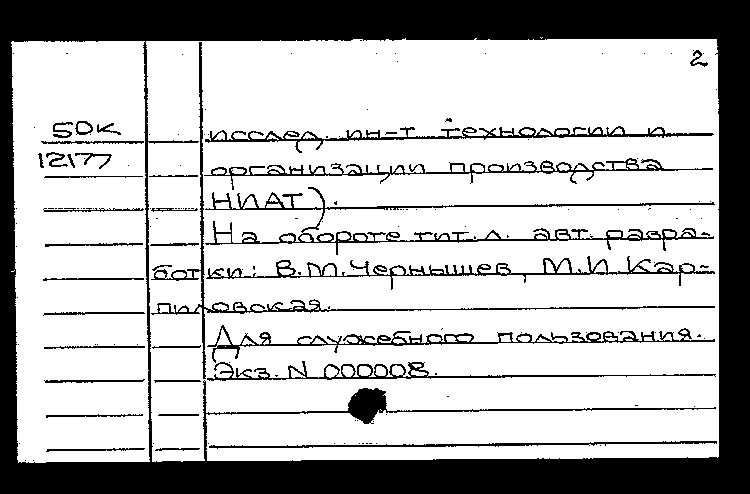 2
50К
исслед. ин-т технологии и
12177
организации производства
НИАТ).
На обороте тит.л. авт. разра-
ботки: В.М.Чернышев, М.И Кар-
пиловская.
Для служебного пользования.
Экз. N 000008.